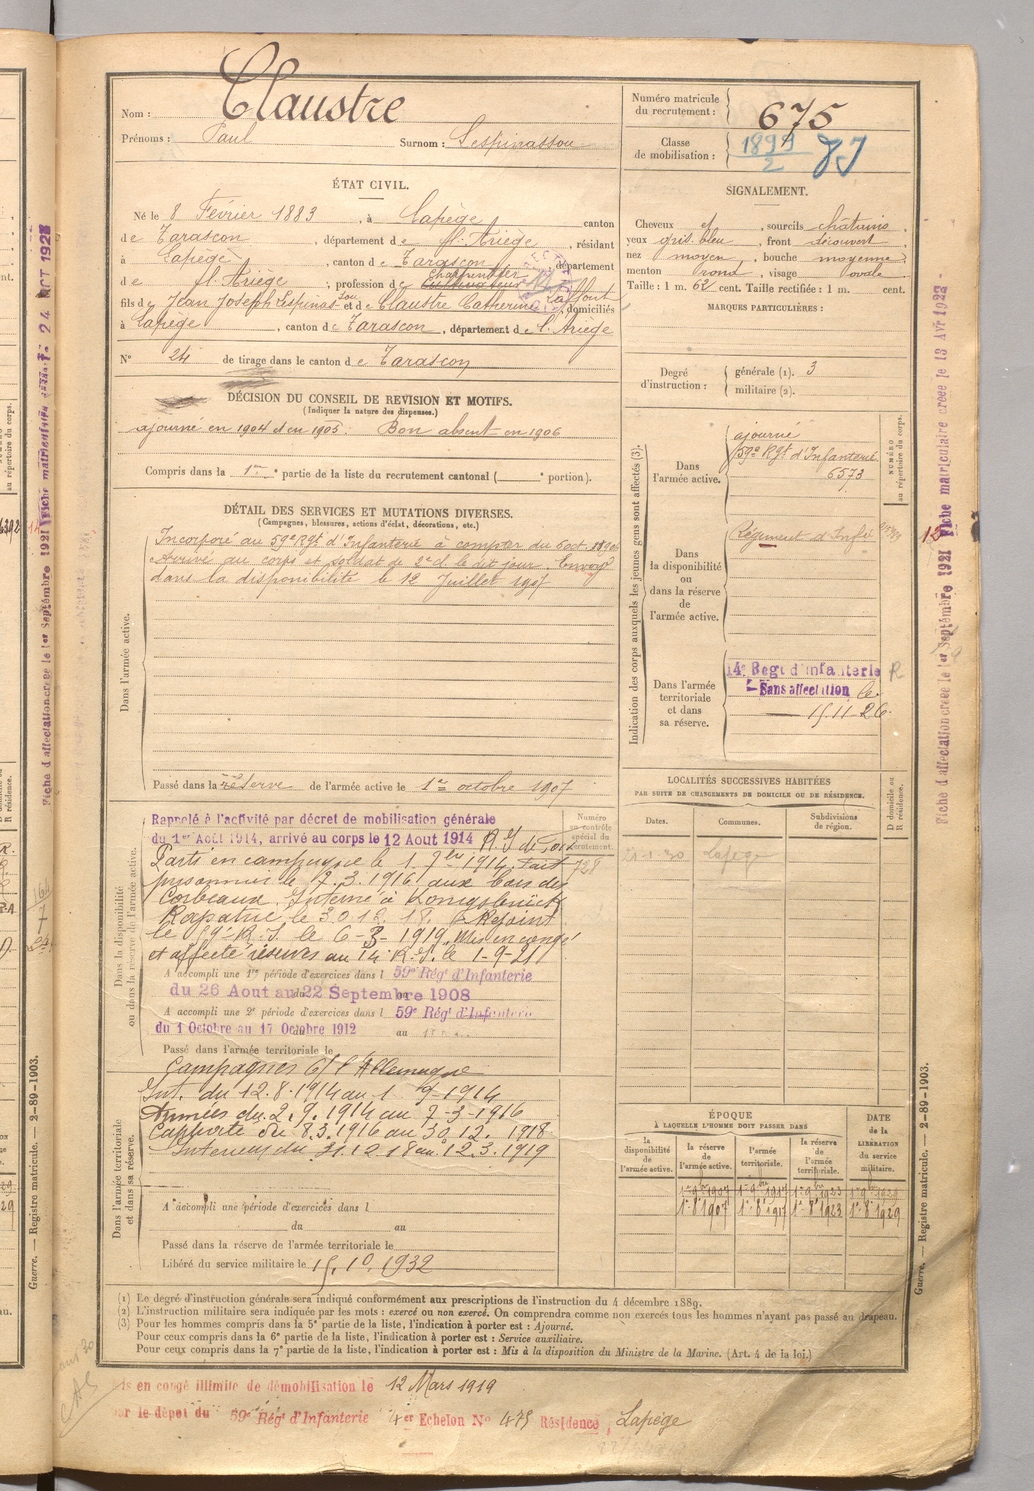 Nom : Claustre
Prénoms : Paul Surnom : Lespinassou
Numéro matricule du recrutement : 675
Classe de mobilisation : 1899/2
ÉTAT CIVIL.
Né le 8 Février 1883, à Lapège canton
de Tarascon, département de l'Ariège, résidant
à Lapège, canton de Tarascon département
de l'Ariège, profession de Charpentier
fils de Jean Joseph Lespinassou et de Claustre Catherine Laffont, domiciliés
à Lapège, canton de Tarascon, département de l'Ariège
N° 24 de tirage dans le canton de Tarascon
SIGNALEMENT.
Cheveux et sourcils châtains
yeux gris bleu, front découvert
nez moyen, bouche moyenne
menton rond, visage ovale
Taille : 1 m. 62 cent. Taille rectifiée : 1 m. cent.
MARQUES PARTICULIÈRES :
Degré d'instruction : générale (1). 3
militaire (2).
DÉCISION DU CONSEIL DE REVISION ET MOTIFS.
(Indiquer la nature des dispenses.)
ajourné en 1904 et en 1905. Bon absent en 1906
Compris dans la 1re partie de la liste du recrutement cantonal ( e portion).
DÉTAIL DES SERVICES ET MUTATIONS DIVERSES.
(Campagnes, blessures, actions d'éclat, décorations, etc.)
Dans l'armée active.
Incorporé au 59e Rgt d'Infanterie à compter du 6 oct.
Arrivé au corps et soldat de 2e cl. le dit jour. Envoyé
dans la disponibilité le 12 Juillet 1907
Passé dans la réserve de l'armée active le 1er octobre 1907
Indication des corps auxquels les jeunes gens sont affectés (3).
Dans l'armée active.
ajourné
59e Rgt d'Infanterie
6573
NUMÉRO au répertoire du corps.
Dans la disponibilité ou dans la réserve de l'armée active.
Régiment d'Infie
Dans l'armée territoriale et dans sa réserve.
14e Regt d'infanterie R
Sans affectation le
15.11.26.
LOCALITÉS SUCCESSIVES HABITÉES
PAR SUITE DE CHANGEMENTS DE DOMICILE OU DE RÉSIDENCE.
D domicile ou R résidence.
Dates. Communes. Subdivisions de région.
Lapège
Dans la disponibilité ou dans la réserve de l'armée active.
Numéro au contrôle spécial du recrutement.
Rappelé à l'activité par décret de mobilisation générale
du 1er Août 1914, arrivé au corps le 12 Aout 1914
Parti en campagne le 1. 7bre 1914. Fait
prisonnier le 7.3.1916 aux bois des
Corbeaux. Interné à Königsbrück
Rapatrié le 30.12.18. Rejoint
le 59e R.I. le 6-3-1919. Mis en congé
et affecté réserves au 14 R.I. le 1-9-21
A accompli une 1re période d'exercices dans l 59e Rég' d'Infanterie
du 26 Aout au 22 Septembre 1908
A accompli une 2e période d'exercices dans l 59e Rég' d'Infanterie
du 1 Octobre au 17 Octobre 1912 au
Passé dans l'armée territoriale le
Campagnes c/ l'Allemagne
Dans l'armée territoriale et dans sa réserve.
Int. du 12.8.1914 au 1 9-1914
Armées du 2.9.1914 au 7-3-1916
Captivité du 8.3.1916 au 30.12. 1918
Intérieur du 31.12.18 au 12.3.1919
A accompli une période d'exercices dans l
du au
Passé dans la réserve de l'armée territoriale le
Libéré du service militaire le 15.10.1932
ÉPOQUE
À LAQUELLE L'HOMME DOIT PASSER DANS
DATE de la LIBÉRATION du service militaire.
la disponibilité de l'armée active. la réserve de l'armée active. l'armée territoriale. la réserve de l'armée territoriale.
1er 8bre 1907 1er 8bre 1917 1er 8bre 1923 1er 8bre 1929
(1) Le degré d'instruction générale sera indiqué conformément aux prescriptions de l'instruction du 4 décembre 1889.
(2) L'instruction militaire sera indiquée par les mots : exercé ou non exercé. On comprendra comme non exercés tous les hommes n'ayant pas passé au drapeau.
(3) Pour les hommes compris dans la 5e partie de la liste, l'indication à porter est : Ajourné.
Pour ceux compris dans la 6e partie de la liste, l'indication à porter est : Service auxiliaire.
Pour ceux compris dans la 7e partie de la liste, l'indication à porter est : Mis à la disposition du Ministre de la Marine. (Art. 4 de la loi.)
Mis en congé illimité de démobilisation le 12 Mars 1919
par le dépot du 59e Rég' d'Infanterie Echelon No 475 Résidence, Lapège
Guerre. — Registre matricule. — 2-89-1903.
Guerre. — Registre matricule. — 2-89-1903.
Fiche d'affectation créée le 1er Septembre 1921 Fiche matriculaire créée le